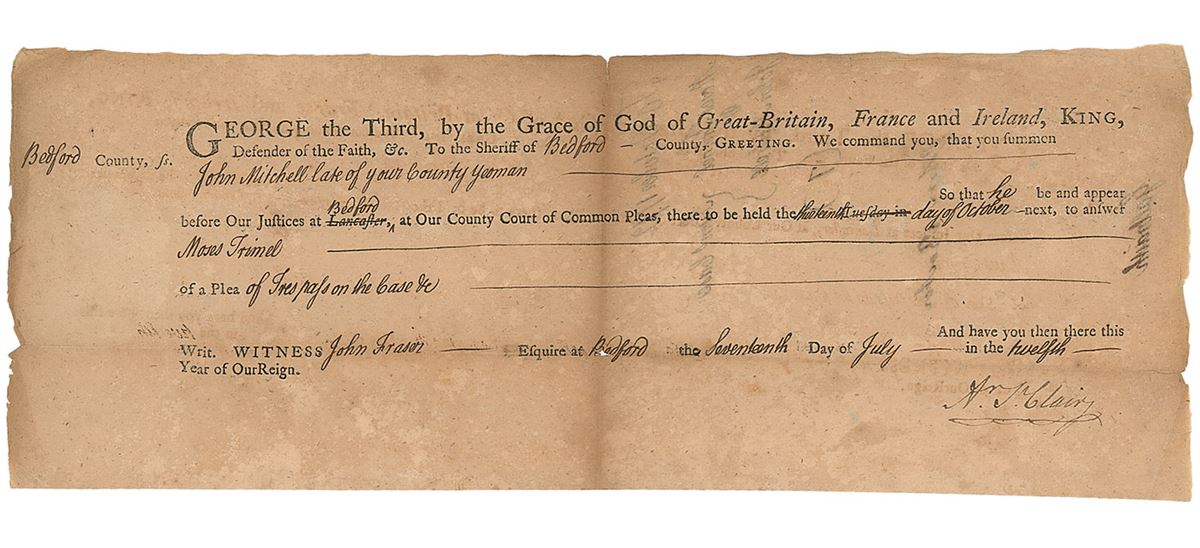 GEORGE the Third, by the Grace of God of Great-Britain, France and Ireland, KING,
Bedford County, ſs. Defender of the Faith, &c. To the Sheriff of Bedford — County, GREETING. We command you, that you ſummon
John Mitchell late of your County yeoman
So that he be and appear
Bedford
before Our Juſtices at Lancaſter, at Our County Court of Common Pleas, there to be held the thirteenth Tueſday in day of October next, to anſwer
Moses Trimel
of a Plea of Treſpaſs on the Case &c
And have you then there this
Writ. WITNESS John Fraser — Eſquire at Bedford the Seventeenth Day of July — in the twelfth —
Year of Our Reign.
Ar. St. Clair